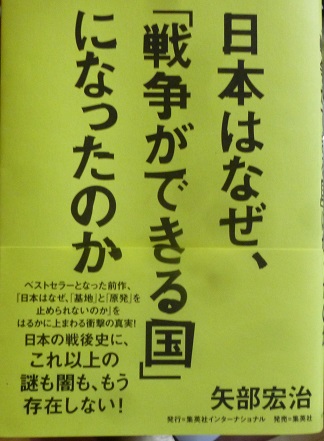 日本はなぜ、
「戦争ができる国」
になったのか
ベストセラーとなった前作、
「日本はなぜ、「基地」と「原発」を
止められないのか」を
はるかに上まわる衝撃の真実!
日本の戦後史に、
これ以上の
謎も闇も、もう
存在しない!
矢部宏治
発行=集英社インターナショナル 発売=集英社